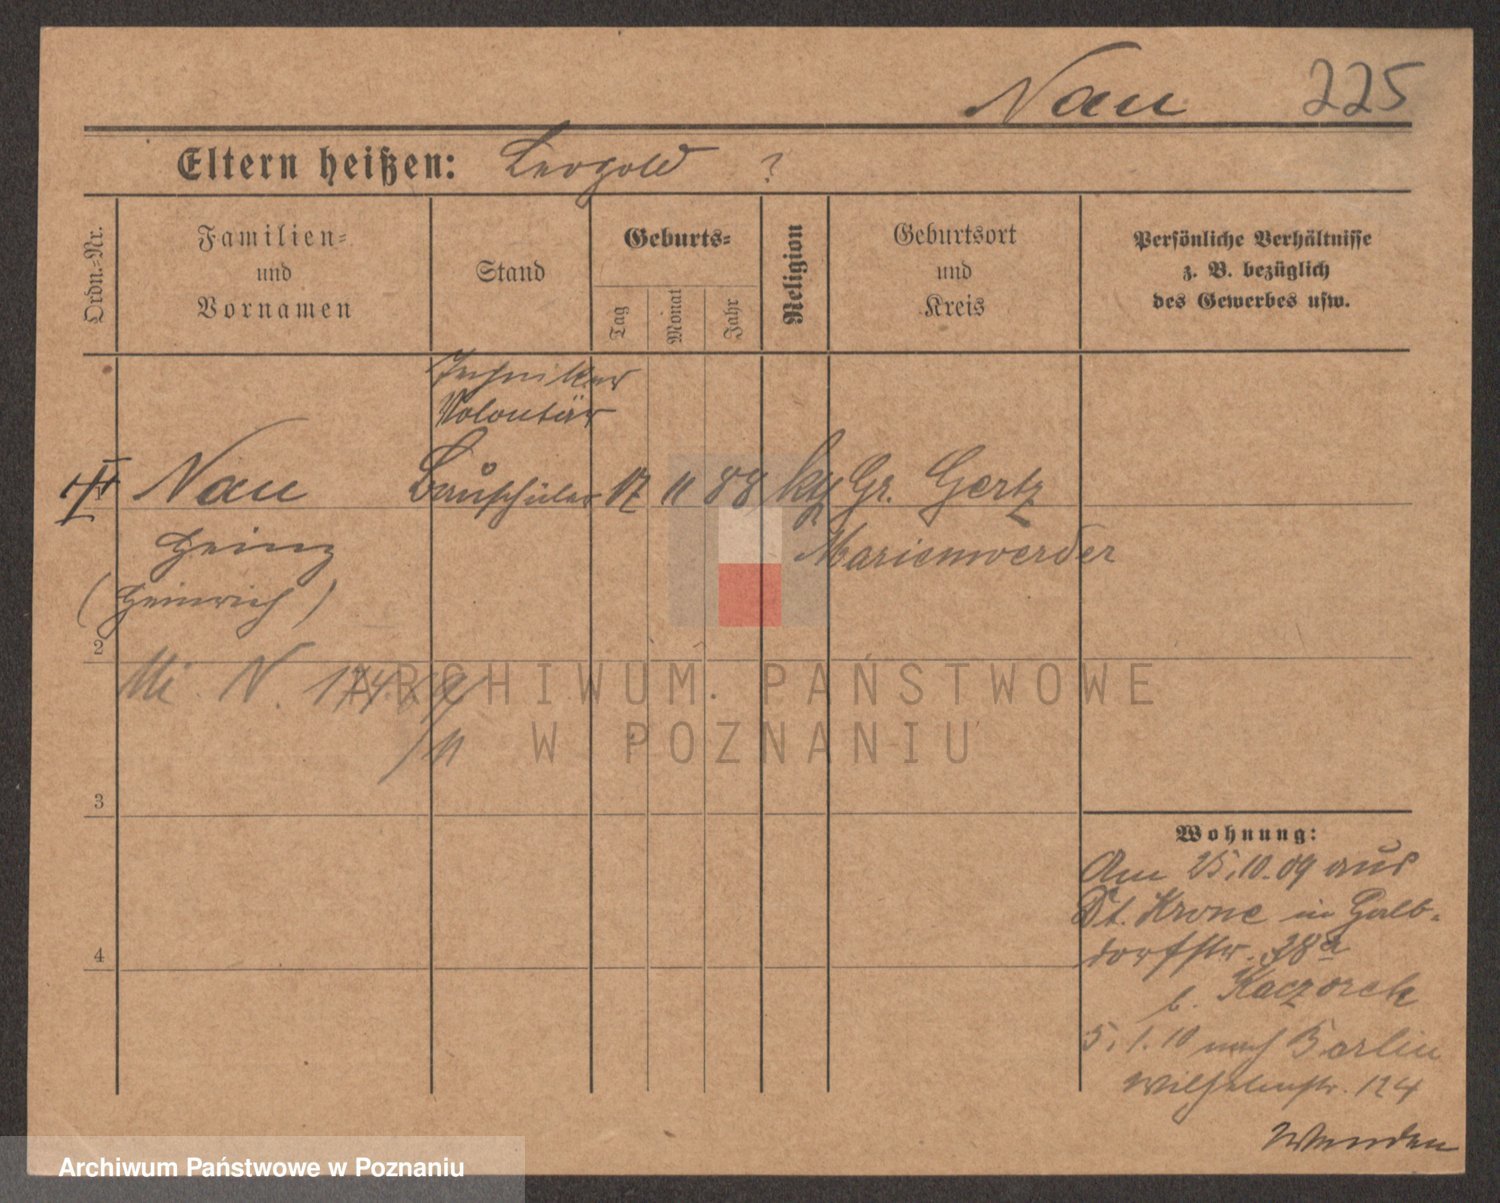 Nau 225
Eltern heißen: Leopold ?
Ordn.-Nr.
Familien-
und
Vornamen
Stand
Geburts-
Tag
Monat
Jahr
Religion
Geburtsort
und
Kreis
Persönliche Verhältnisse
z. B. bezüglich
des Gewerbes usw.
Techniker
Volontär
Nau Bauschüler 17 11 88 kg Gr. Gertz
Heinz Marienwerder
(Heinrich)
2
Mi. N. 174
/11
3
4
Wohnung:
Am 25.10.09 aus
Dt. Krone in Halb-
dorfstr. 38a
b. Kaczorek
5.1.10 nach Berlin
Wilhelmstr. 124
Wenden
ARCHIWUM PAŃSTWOWE
W POZNANIU
Archiwum Państwowe w Poznaniu